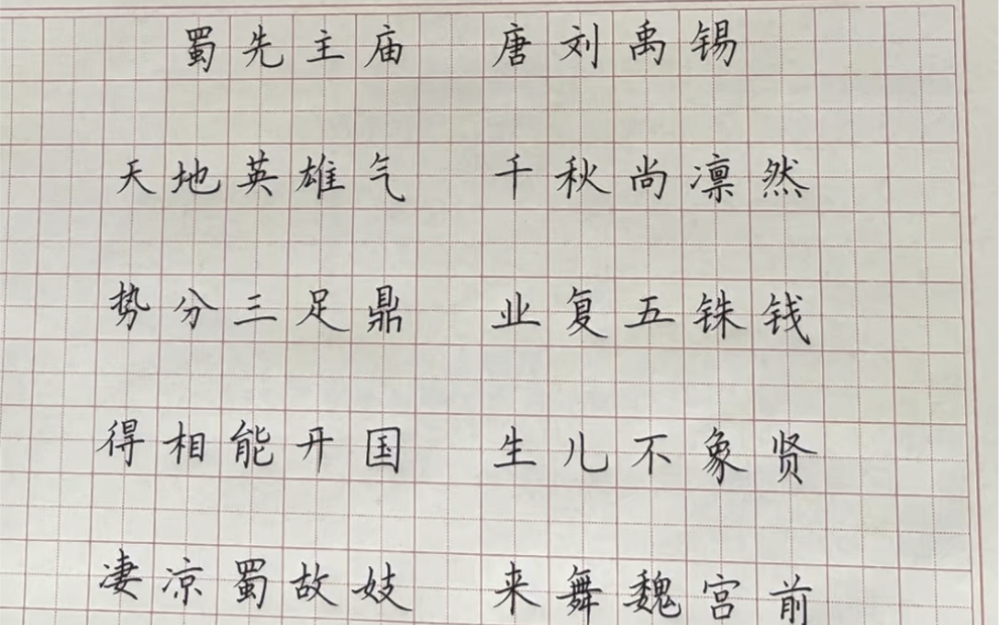 蜀先主庙 唐刘禹锡
天地英雄气 千秋尚凛然
势分三足鼎 业复五铢钱
得相能开国 生儿不象贤
凄凉蜀故妓 来舞魏宫前